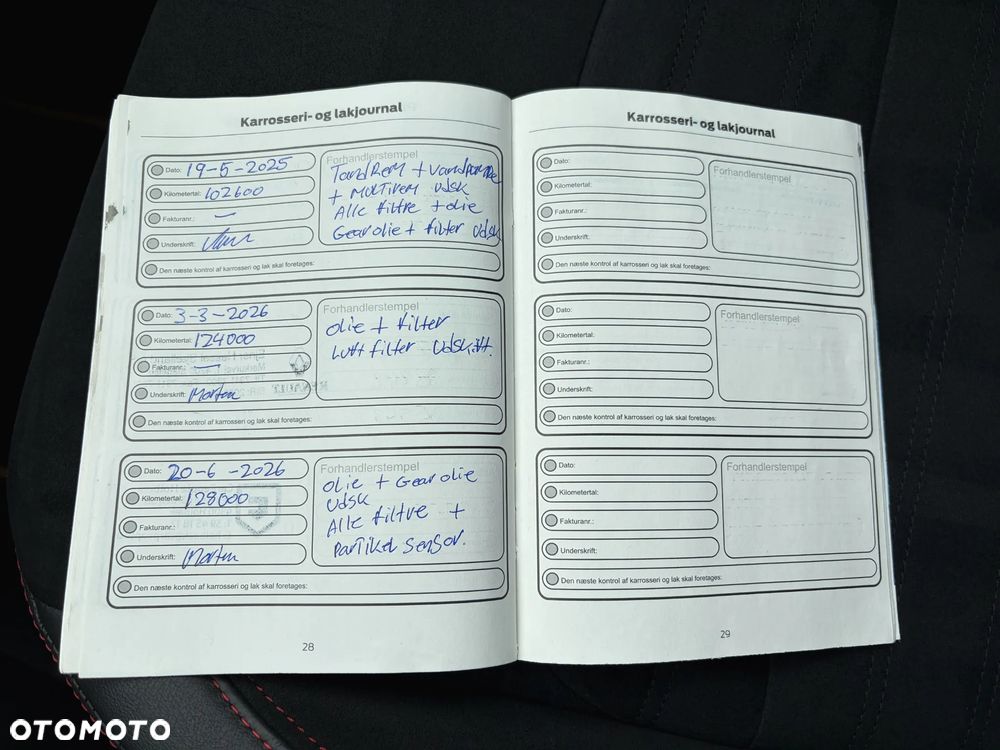 Karrosseri- og lakjournal
Dato: 19-5-2025
Kilometertal: 102600
Fakturanr.: —
Underskrift:
Den næste kontrol af karrosseri og lak skal foretages:
Forhandlerstempel
TandRem + Vandpumpe
+ MULTIREM Udsk
Alle filtre + olie
Gearolie + filter Udsk
Dato: 3-3-2026
Kilometertal: 124000
Fakturanr.: —
Underskrift: Morten
Den næste kontrol af karrosseri og lak skal foretages:
Forhandlerstempel
olie + filter
Luft filter Udskift.
RENAULT
Dato: 20-6-2026
Kilometertal: 128000
Fakturanr.:
Underskrift: Morten
Den næste kontrol af karrosseri og lak skal foretages:
Forhandlerstempel
olie + Gear olie
Udsk
Alle filtre +
Partikel Sensor.
28
Karrosseri- og lakjournal
Dato:
Kilometertal:
Fakturanr.:
Underskrift:
Den næste kontrol af karrosseri og lak skal foretages:
Forhandlerstempel
Dato:
Kilometertal:
Fakturanr.:
Underskrift:
Den næste kontrol af karrosseri og lak skal foretages:
Forhandlerstempel
Dato:
Kilometertal:
Fakturanr.:
Underskrift:
Den næste kontrol af karrosseri og lak skal foretages:
Forhandlerstempel
29
OTOMOTO